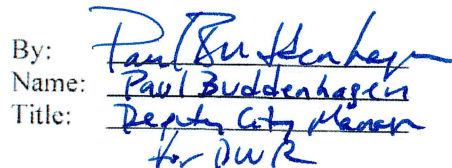 By: Paul Buddenhagen
Name: Paul Buddenhagen
Title: Deputy City Manager
for DWR